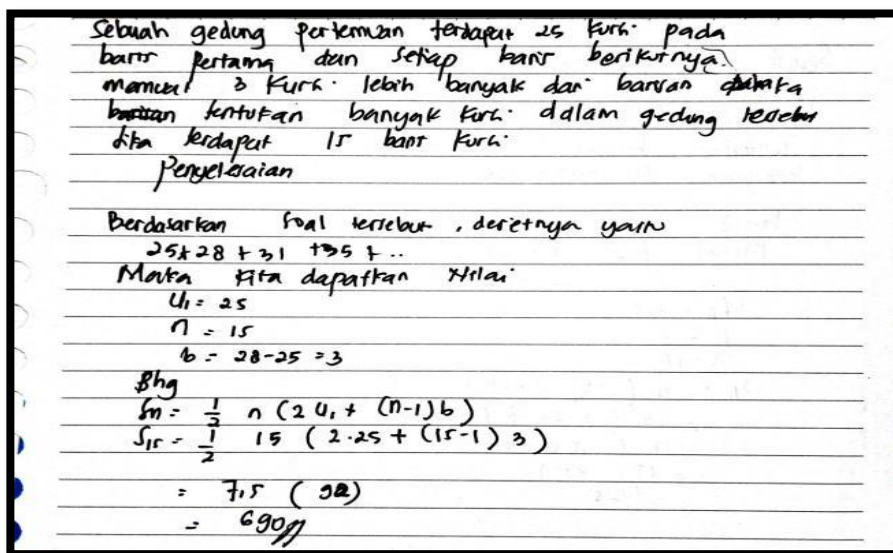 Sebuah gedung pertemuan terdapat 25 kursi pada
baris pertama dan setiap baris berikutnya
memuat 3 kursi lebih banyak dari barisan
tentukan banyak kursi dalam gedung tersebut
Jika terdapat 15 baris kursi
Penyelesaian
Berdasarkan soal tersebut, deretnya yaitu
25+28+31+35+..
Maka kita dapatkan nilai
U₁ = 25
n = 15
b = 28-25 = 3
Shg
Sn = 1/2 n (2 U₁ + (n-1) b)
S₁₅ = 1/2 15 (2.25 + (15-1) 3)
= 7,5 (92)
= 690//